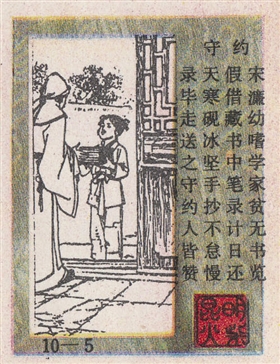 守约
宋濂幼嗜学家贫无书览
假借藏书中笔录计日还
天寒砚冰坚手抄不怠慢
录毕走送之守约人皆赞
昆明
火柴
10—5